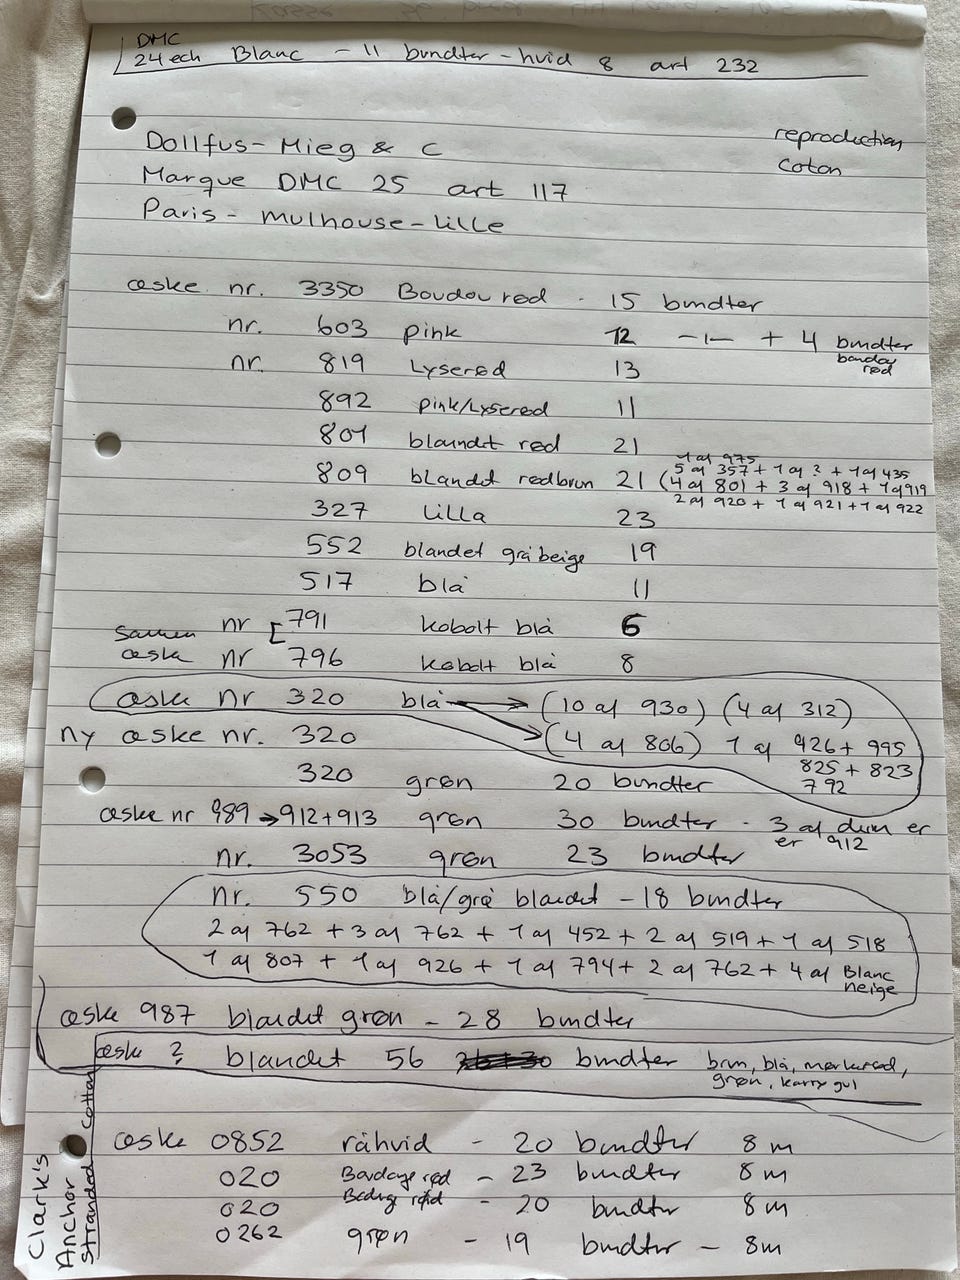 DMC
24 ech Blanc - 11 bundter - hvid 8 art 232
reproduction
Coton
Dollfus - Mieg & C
Marque DMC 25 art 117
Paris - mulhouse - Lille
æske nr. 3350 Boudou rød - 15 bundter
nr. 603 pink 12 -1- + 4 bundter
bordou
rød
nr. 819 Lyserød 13
892 pink/Lyserød 11
801 blandet rød 21
1 af 975
5 af 357 + 1 af ? + 1 af 435
809 blandet rødbrun 21 (4 af 801 + 3 af 918 + 1 af 919
2 af 920 + 1 af 921 + 1 af 922
327 Lilla 23
552 blandet grå beige 19
517 blå 11
Sammen nr [791 kobolt blå 6
æske nr 796 kobolt blå 8
æske nr 320 blå → (10 af 930) (4 af 312)
(4 af 806) 1 af 926 + 995
825 + 823
792
ny æske nr. 320
320 grøn 20 bundter
æske nr 989 → 912 + 913 grøn 30 bundter - 3 af dem er
er 912
nr. 3053 grøn 23 bundter
nr. 550 blå/grå blandet - 18 bundter
2 af 762 + 3 af 762 + 1 af 452 + 2 af 519 + 1 af 518
1 af 807 + 1 af 926 + 1 af 794 + 2 af 762 + 4 af Blanc
neige
æske 987 blandet grøn - 28 bundter
æske ? blandet 56 bundter brun, blå, mørkerød,
grøn, karry gul
Clark's
Anchor
Stranded Cotton
æske 0852 råhvid - 20 bundter 8 m
020 Bordaux rød - 23 bundter 8 m
020 rød - 20 bundter 8 m
0262 grøn - 19 bundter - 8m